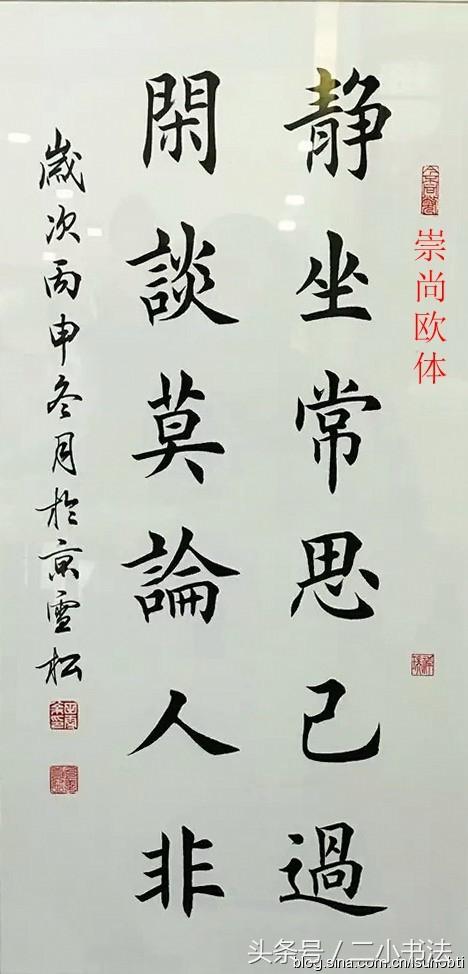 静坐常思己過
閑談莫論人非
歲次丙申冬月於京雪松
崇尚欧体
头条号／二小书法
blog.sina.com.cn/sunobtl